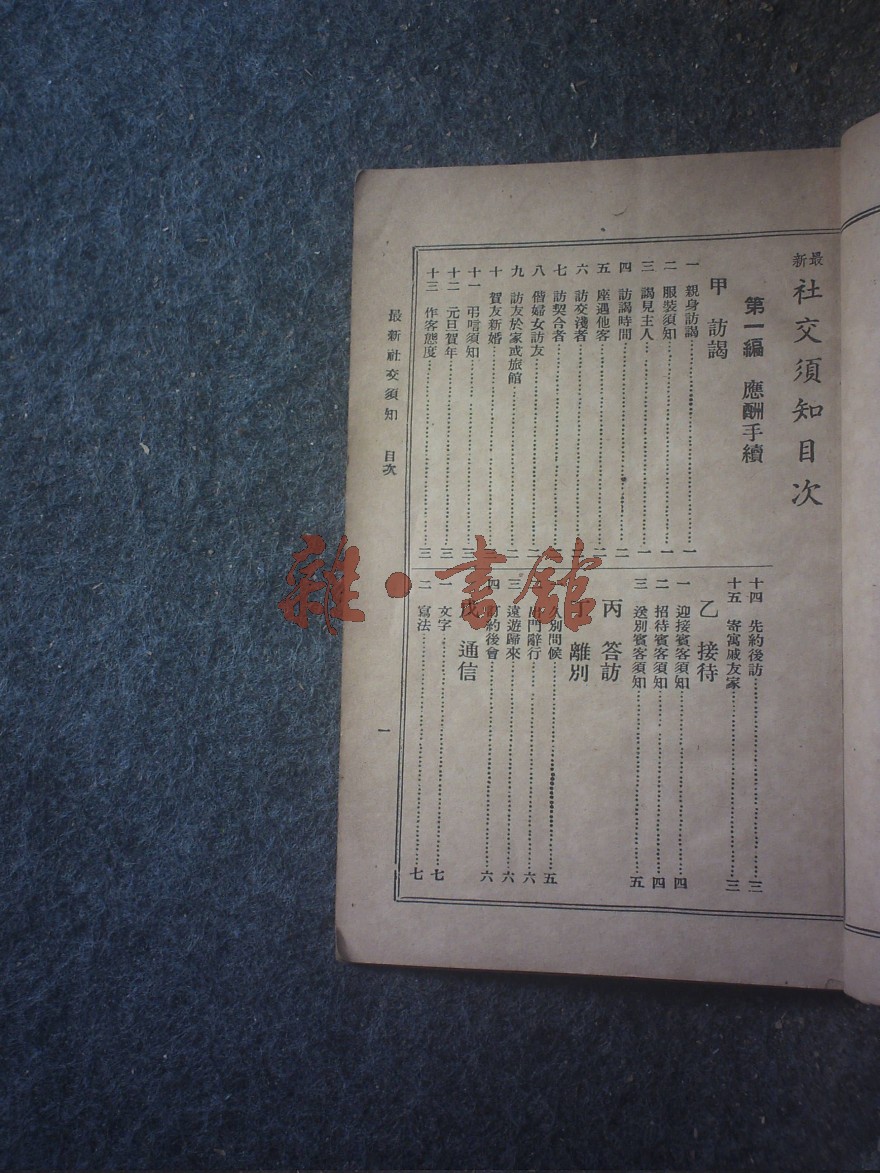 最新社交須知目次
第一編　應酬手續
甲　訪謁
一　親身訪謁……一
二　服裝須知……一
三　謁見主人……一
四　訪謁時間……二
五　座遇他客……二
六　訪交淺者……二
七　訪契合者……二
八　偕婦女訪友……二
九　訪友於家或旅館……二
十　賀友新婚
十一　弔唁須知……三
十二　元旦賀年……三
十三　作客態度……三
十四　先約後訪……三
十五　寄寓戚友家……三
乙　接待
一　迎接賓客須知……四
二　招待賓客須知……四
三　送別賓客須知……五
丙　答訪
丁　離別
久別問候……五
出門辭行……六
三　遠遊歸來……六
四　訂約後會……六
戊　通信
一　文字……七
二　寫法……七
最新社交須知　目次
一
雜·書館